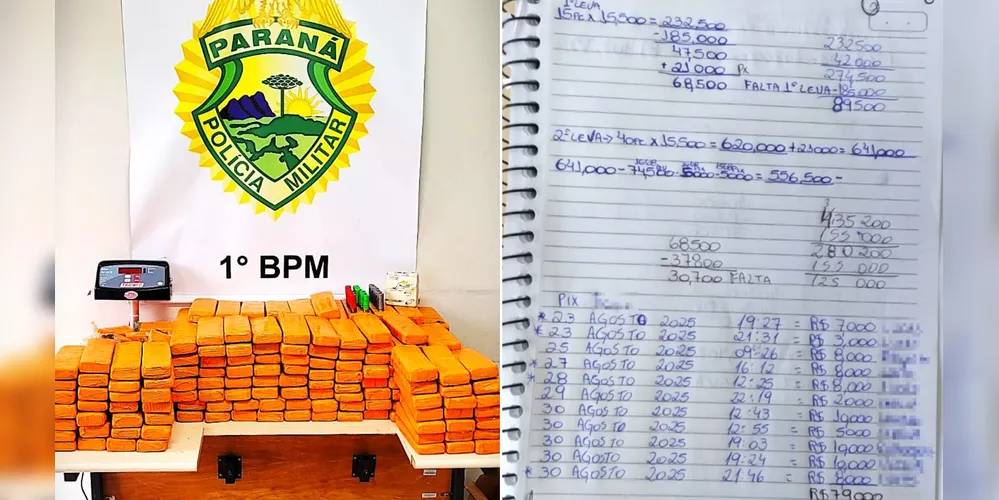 PARANÁ
POLÍCIA MILITAR
1° BPM
1°LEVA
15PC x 15,500 = 232,500
-185,000
47,500
+21000 PX
68,500 FALTA 1° LEVA
232500
42000
274,500
89500
2°LEVA → 40PC x 15,500 = 620,000 + 21000 = 641,000
641,000 - 74,500 - 5000 - 5000 = 556,500 -
435 200
155 000
280 200
155 000
125 000
68500
-37800
30,700 FALTA
PIX
* 23 AGOSTO 2025 19:27 = R$ 7000
* 23 AGOSTO 2025 21:31 = R$ 3,000
25 AGOSTO 2025 09:26 = R$ 8,000
* 27 AGOSTO 2025 16:12 = R$ 8000
* 28 AGOSTO 2025 12:25 = R$ 8,000
29 AGOSTO 2025 22:19 = R$ 2000
30 AGOSTO 2025 12:43 = R$ 10,000
30 AGOSTO 2025 12:55 = R$ 5000
30 AGOSTO 2025 19:03 = R$ 10,000
30 AGOSTO 2025 19:24 = R$ 10,000
* 30 AGOSTO 2025 21:46 = R$ 8000
R$ 79000